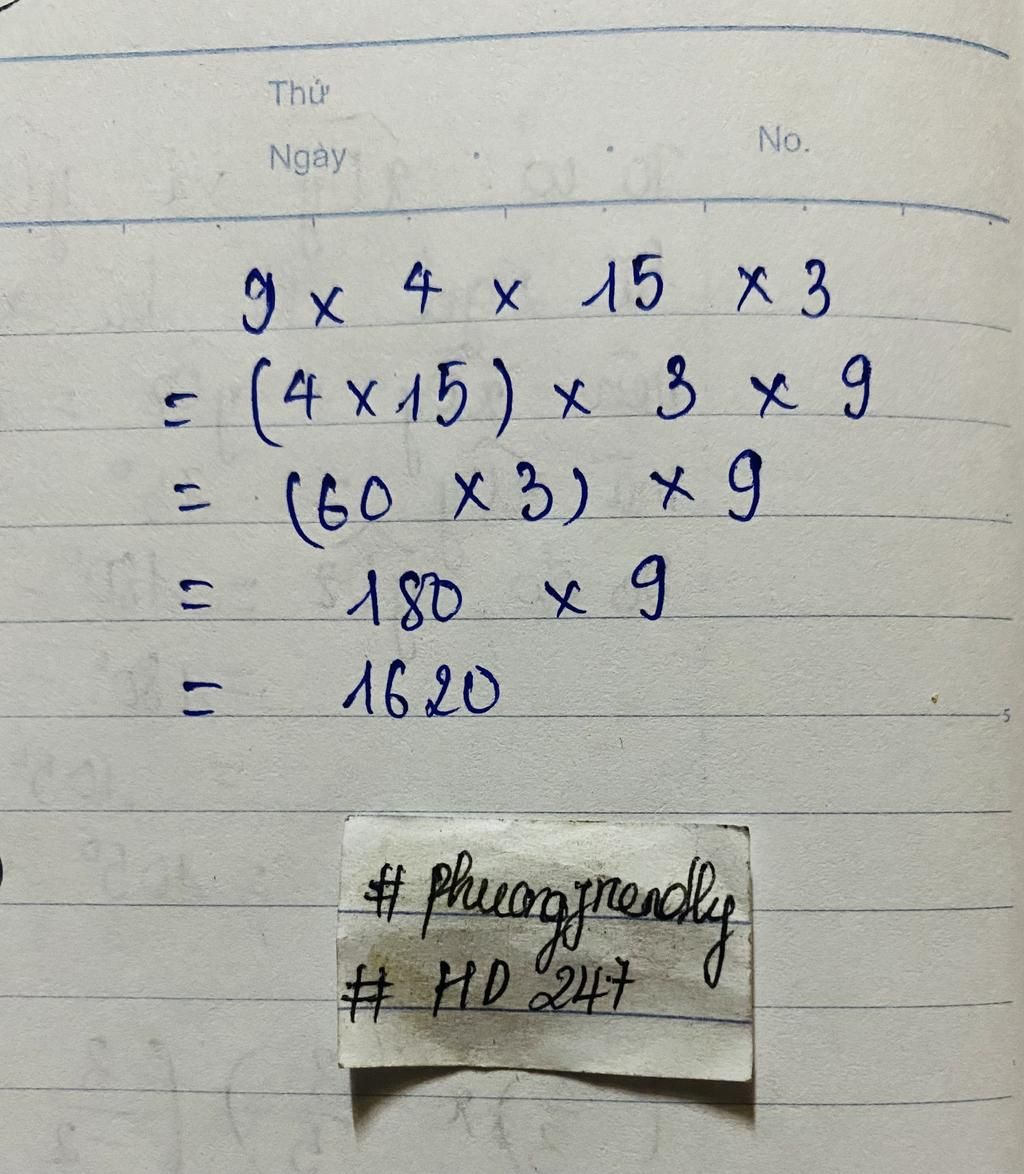 Thứ
Ngày
No.
9 x 4 x 15 x 3
= (4 x 15) x 3 x 9
= (60 x 3) x 9
= 180 x 9
= 1620
5
# phuongfriendly
# HD 247